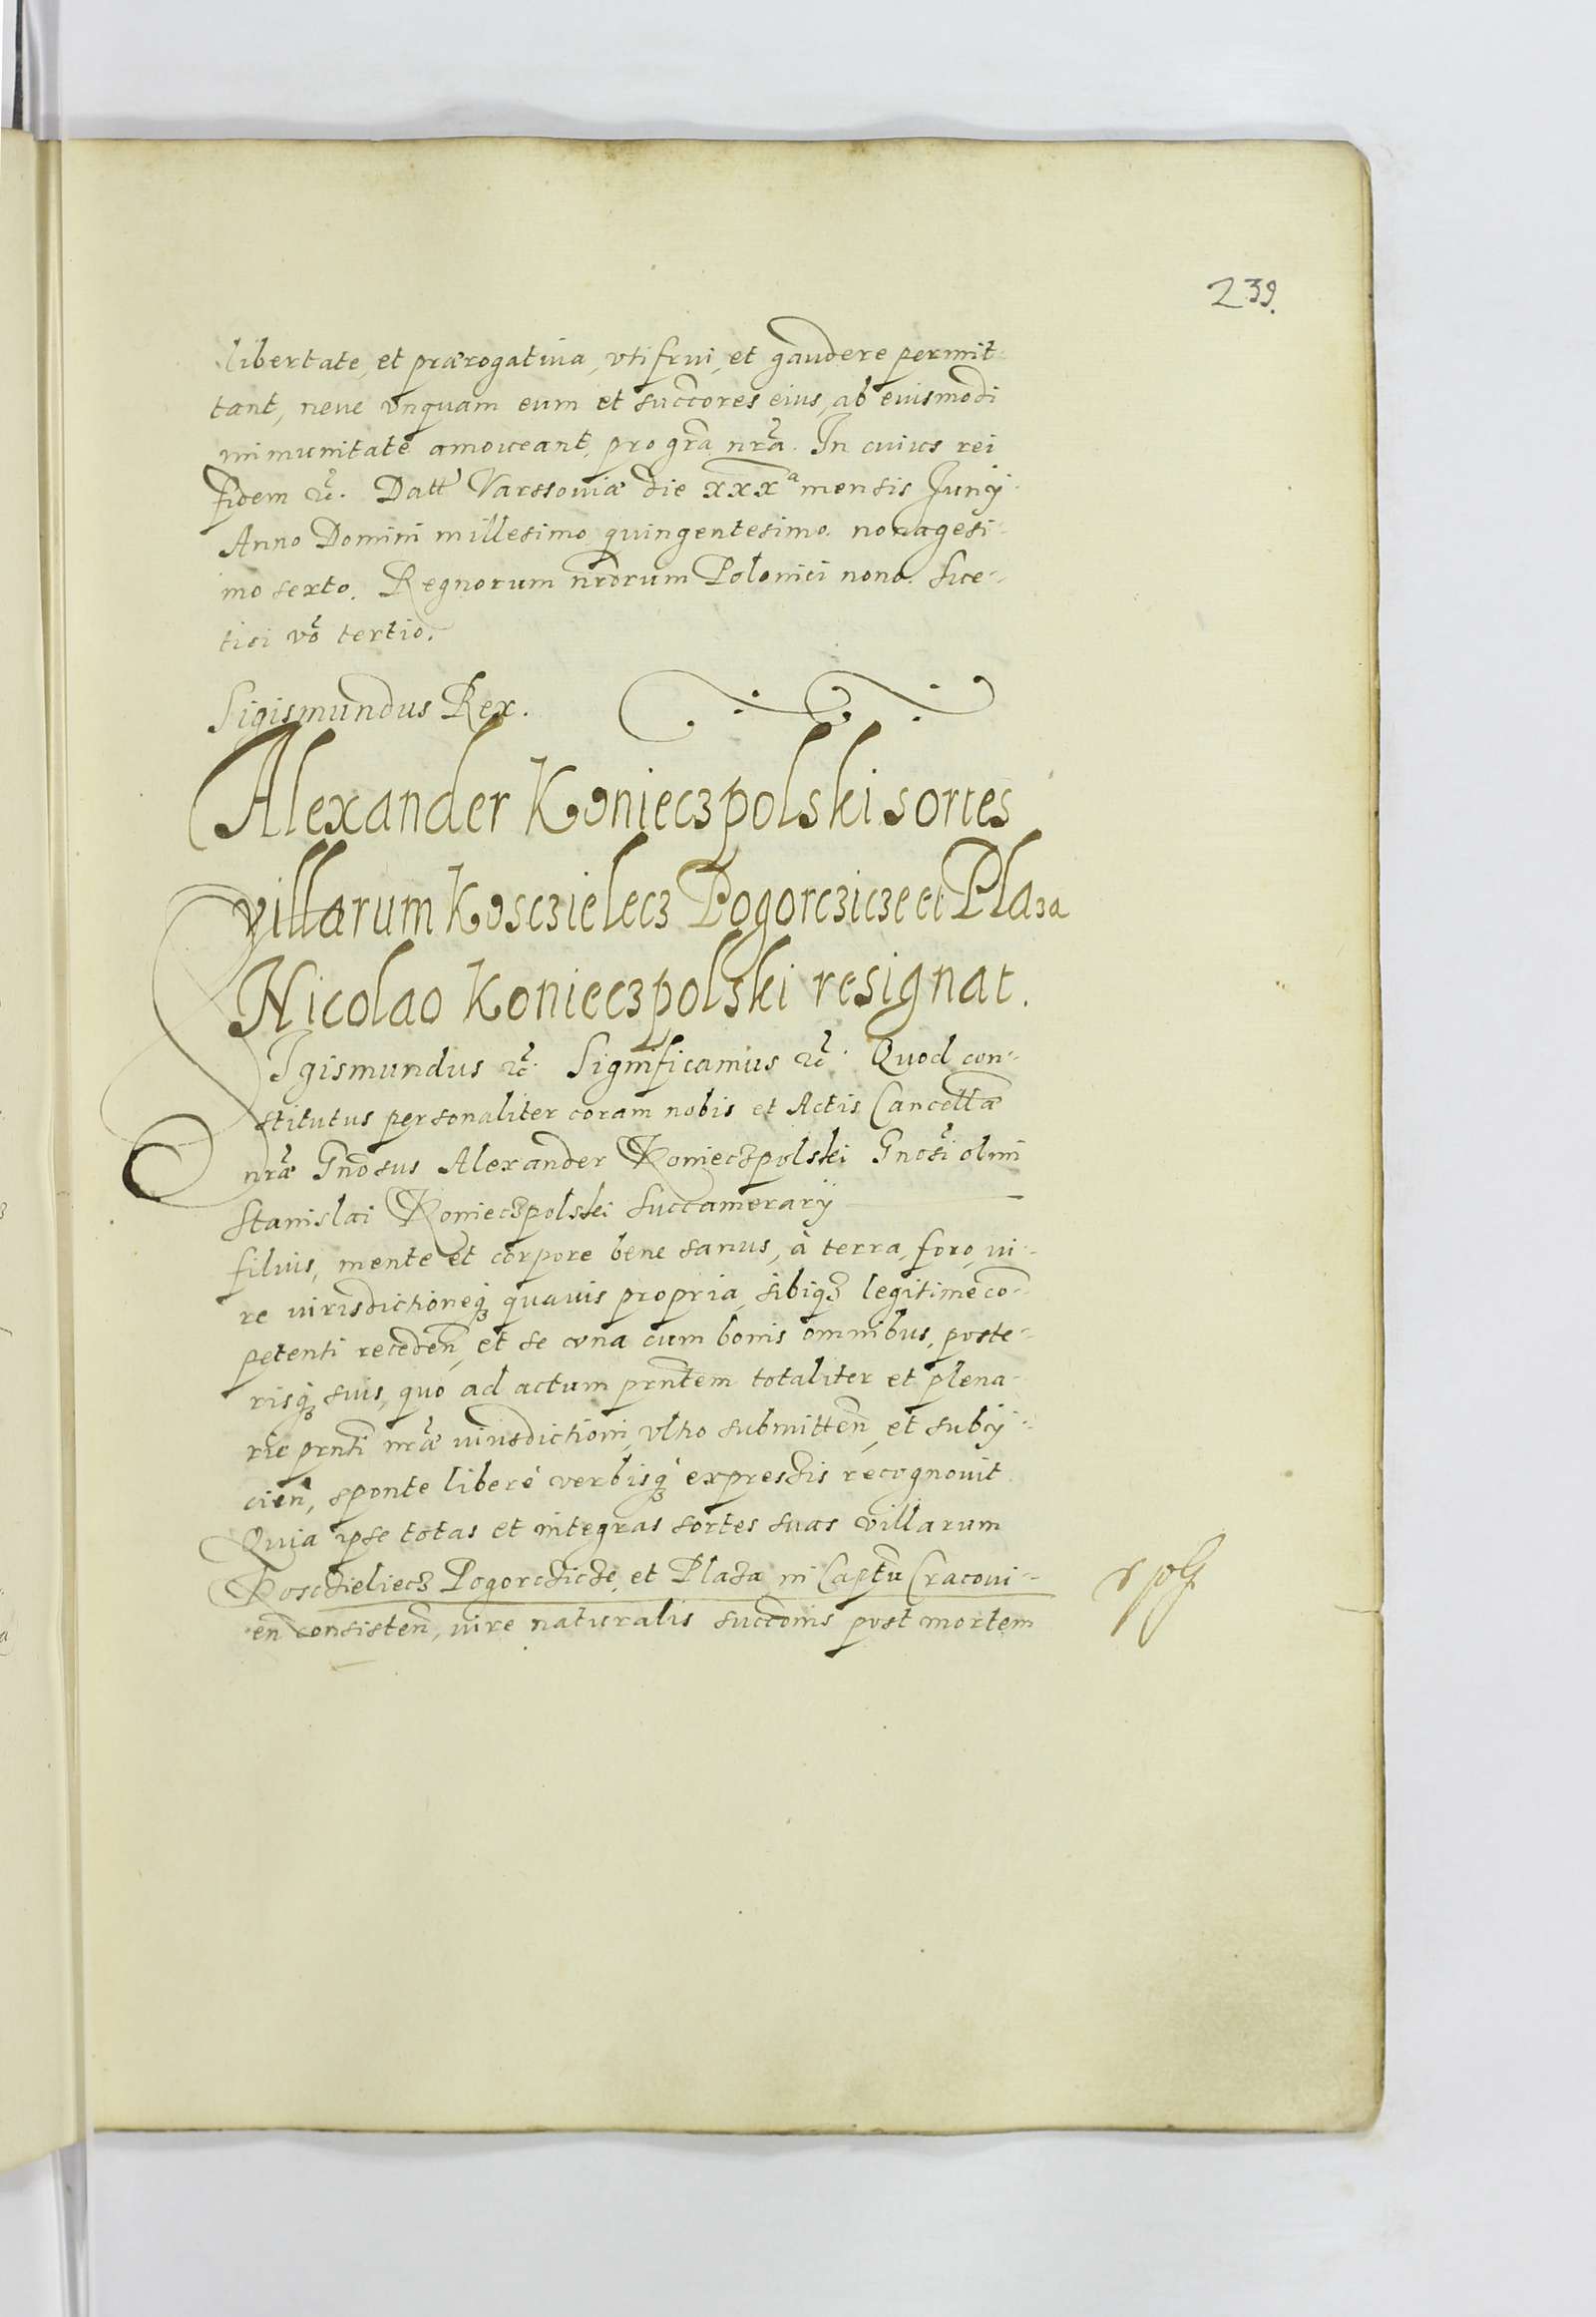 239.
libertate, et prærogatiua, vti frui, et gaudere permit-
tant, neue vnquam eum et succores eius, ab eiusmodi
immunitate amoueant, pro gra nra. In cuius rei
fidem etc. Datt Varssouiæ die xxxa mensis Junij
Anno Domini millesimo quingentesimo nonagesi-
mo sexto. Regnorum nrorum Polonici nono. Sue-
tici vo tertio.
Sigismundus Rex.
Alexander Konieczpolski sortes
villarum Kosczielecz Pogorczicze et Plaza
Nicolao Konieczpolski resignat.
SIgismundus etc. Significamus etc. Quod con-
stitutus personaliter coram nobis et Actis Cancellæ
nræ Gnosus Alexander Konieczpolski Gnosi olim
Stanislai Konieczpolski Succamerarij
filius, mente et corpore bene sanus, à terra, foro, iu-
re iurisdictioneq; quauis propria, sibiq; legitime co-
petenti receden, et se vna cum bonis omnibus, poste-
risq; suis, quo ad actum prntem totaliter et plena-
rie prnti nræ iurisdictioni, vltro submitten, et subij-
cien, sponte liberè verbisq; expressis recognouit
Quia ipse totas et integras sortes suas villarum
Kosczieliecz Pogorczicze, et Plaza in Captu Cracoui-
en consisten, iure naturalis succonis post mortem